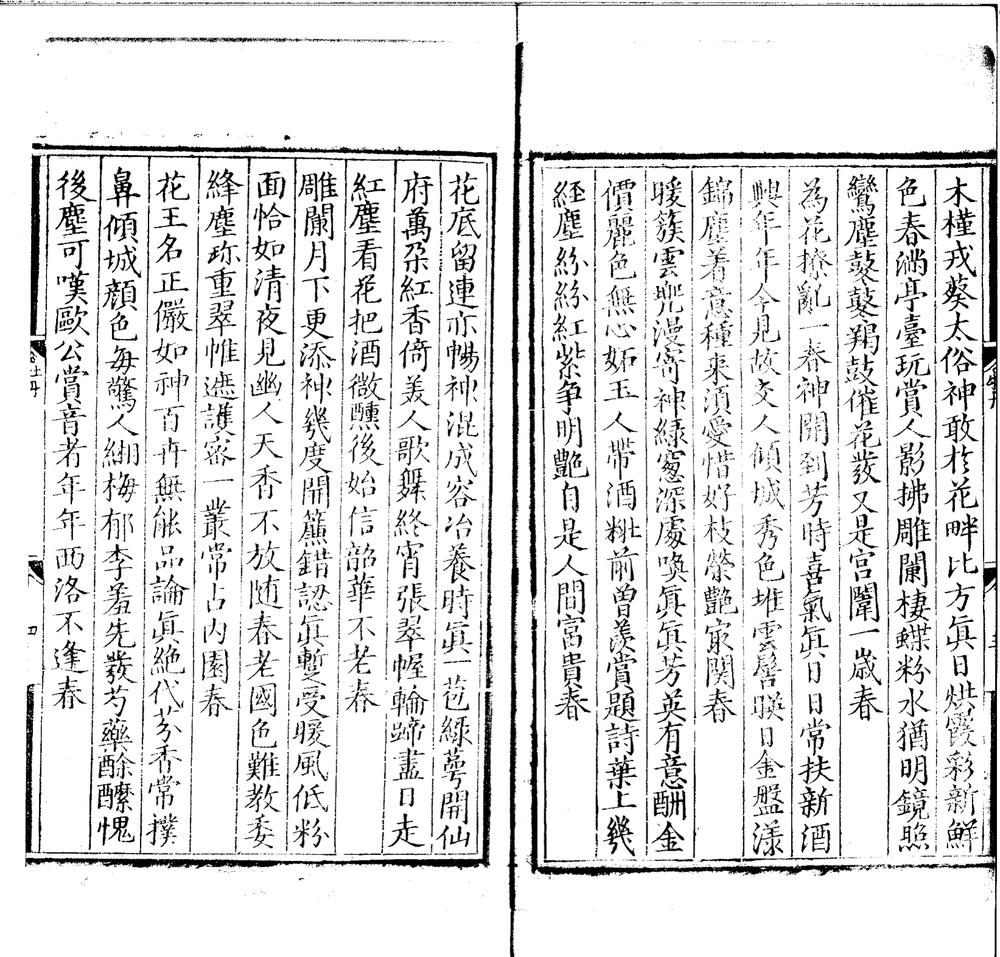 木槿戎葵太俗神敢扵花畔比方眞日烘霞彩新鮮
色春滿亭臺玩賞人影拂雕闌棲蝶粉水猶明鏡照
鸞塵鼕鼕羯鼓催花發又是宫闈一歲春
為花撩亂一春神開到芳時喜氣眞日日常扶新酒
興年年今見故交人傾城秀色堆雲髻暎日金盤漾
錦塵着意種来須愛惜好枝榮艷㝡関春
暖簇雲兠漫寄神緑窓深處喚眞眞芳英有意酬金
價麗色無心妬玉人帶酒粧前曽羡賞題詩葉上幾
經塵紛紛紅紫争明艷自是人間富貴春
花底留連亦暢神混成容冶養時眞一苞緑蕚開仙
府萬朶紅香倚美人歌舞終宵張翠幄輪蹄盡日走
紅塵看花把酒微醺後始信韶華不老春
雕闌月下更添神幾度開簾錯認眞暫受暖風低粉
面恰如清夜見幽人天香不放随春老國色難教委
絳塵珎重翠帷遮護密一叢常占内園春
花王名正儼如神百卉無能品論眞絶代芬香常撲
鼻傾城顔色每驚人緗梅郁李羞先發芍藥酴醿愧
後塵可嘆歐公賞音者年年西洛不逢春
四